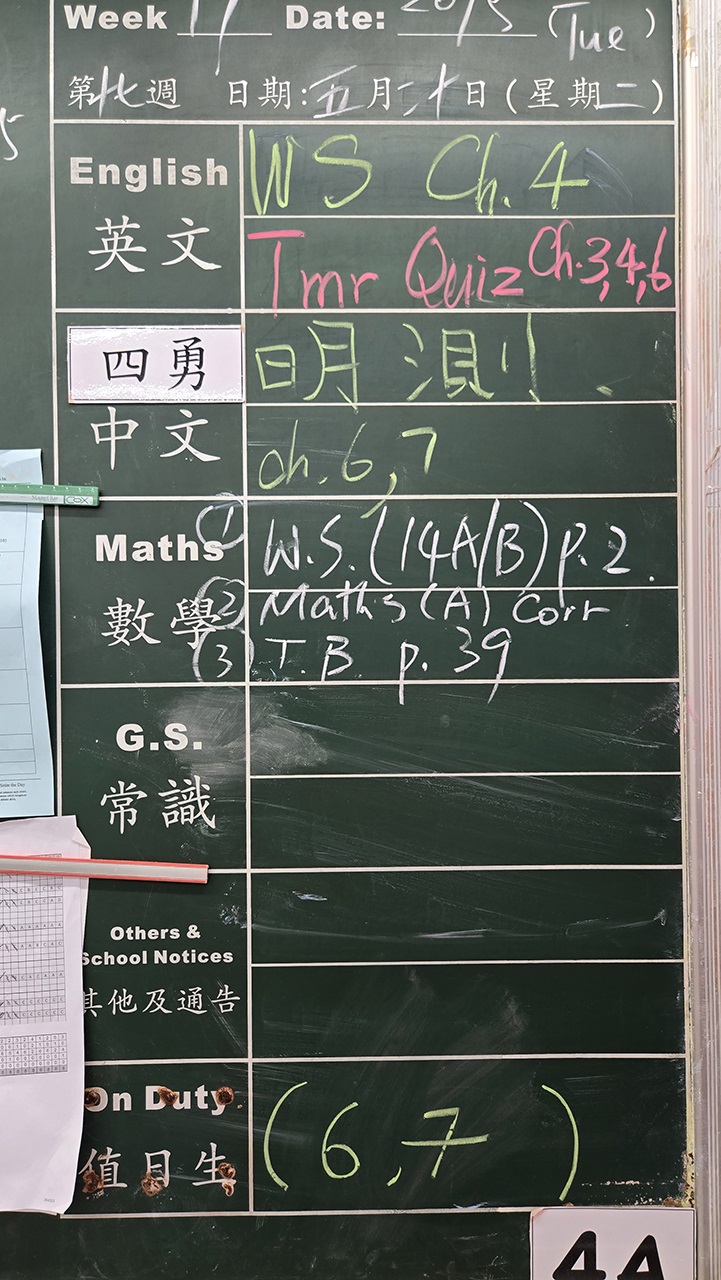 Week 17 Date: 20/5 (Tue)
第十七週 日期:五月二十日(星期二)
English WS Ch.4
英文 Tmr Quiz Ch.3,4,6
四勇 明測、
中文 ch.6,7
Maths ① W.S.(14A/B) p.2.
數學 (2) Maths (A) Corr
(3) T.B. p.39
G.S.
常識
Others &
School Notices
其他及通告
On Duty (6,7)
值日生
4A
COX